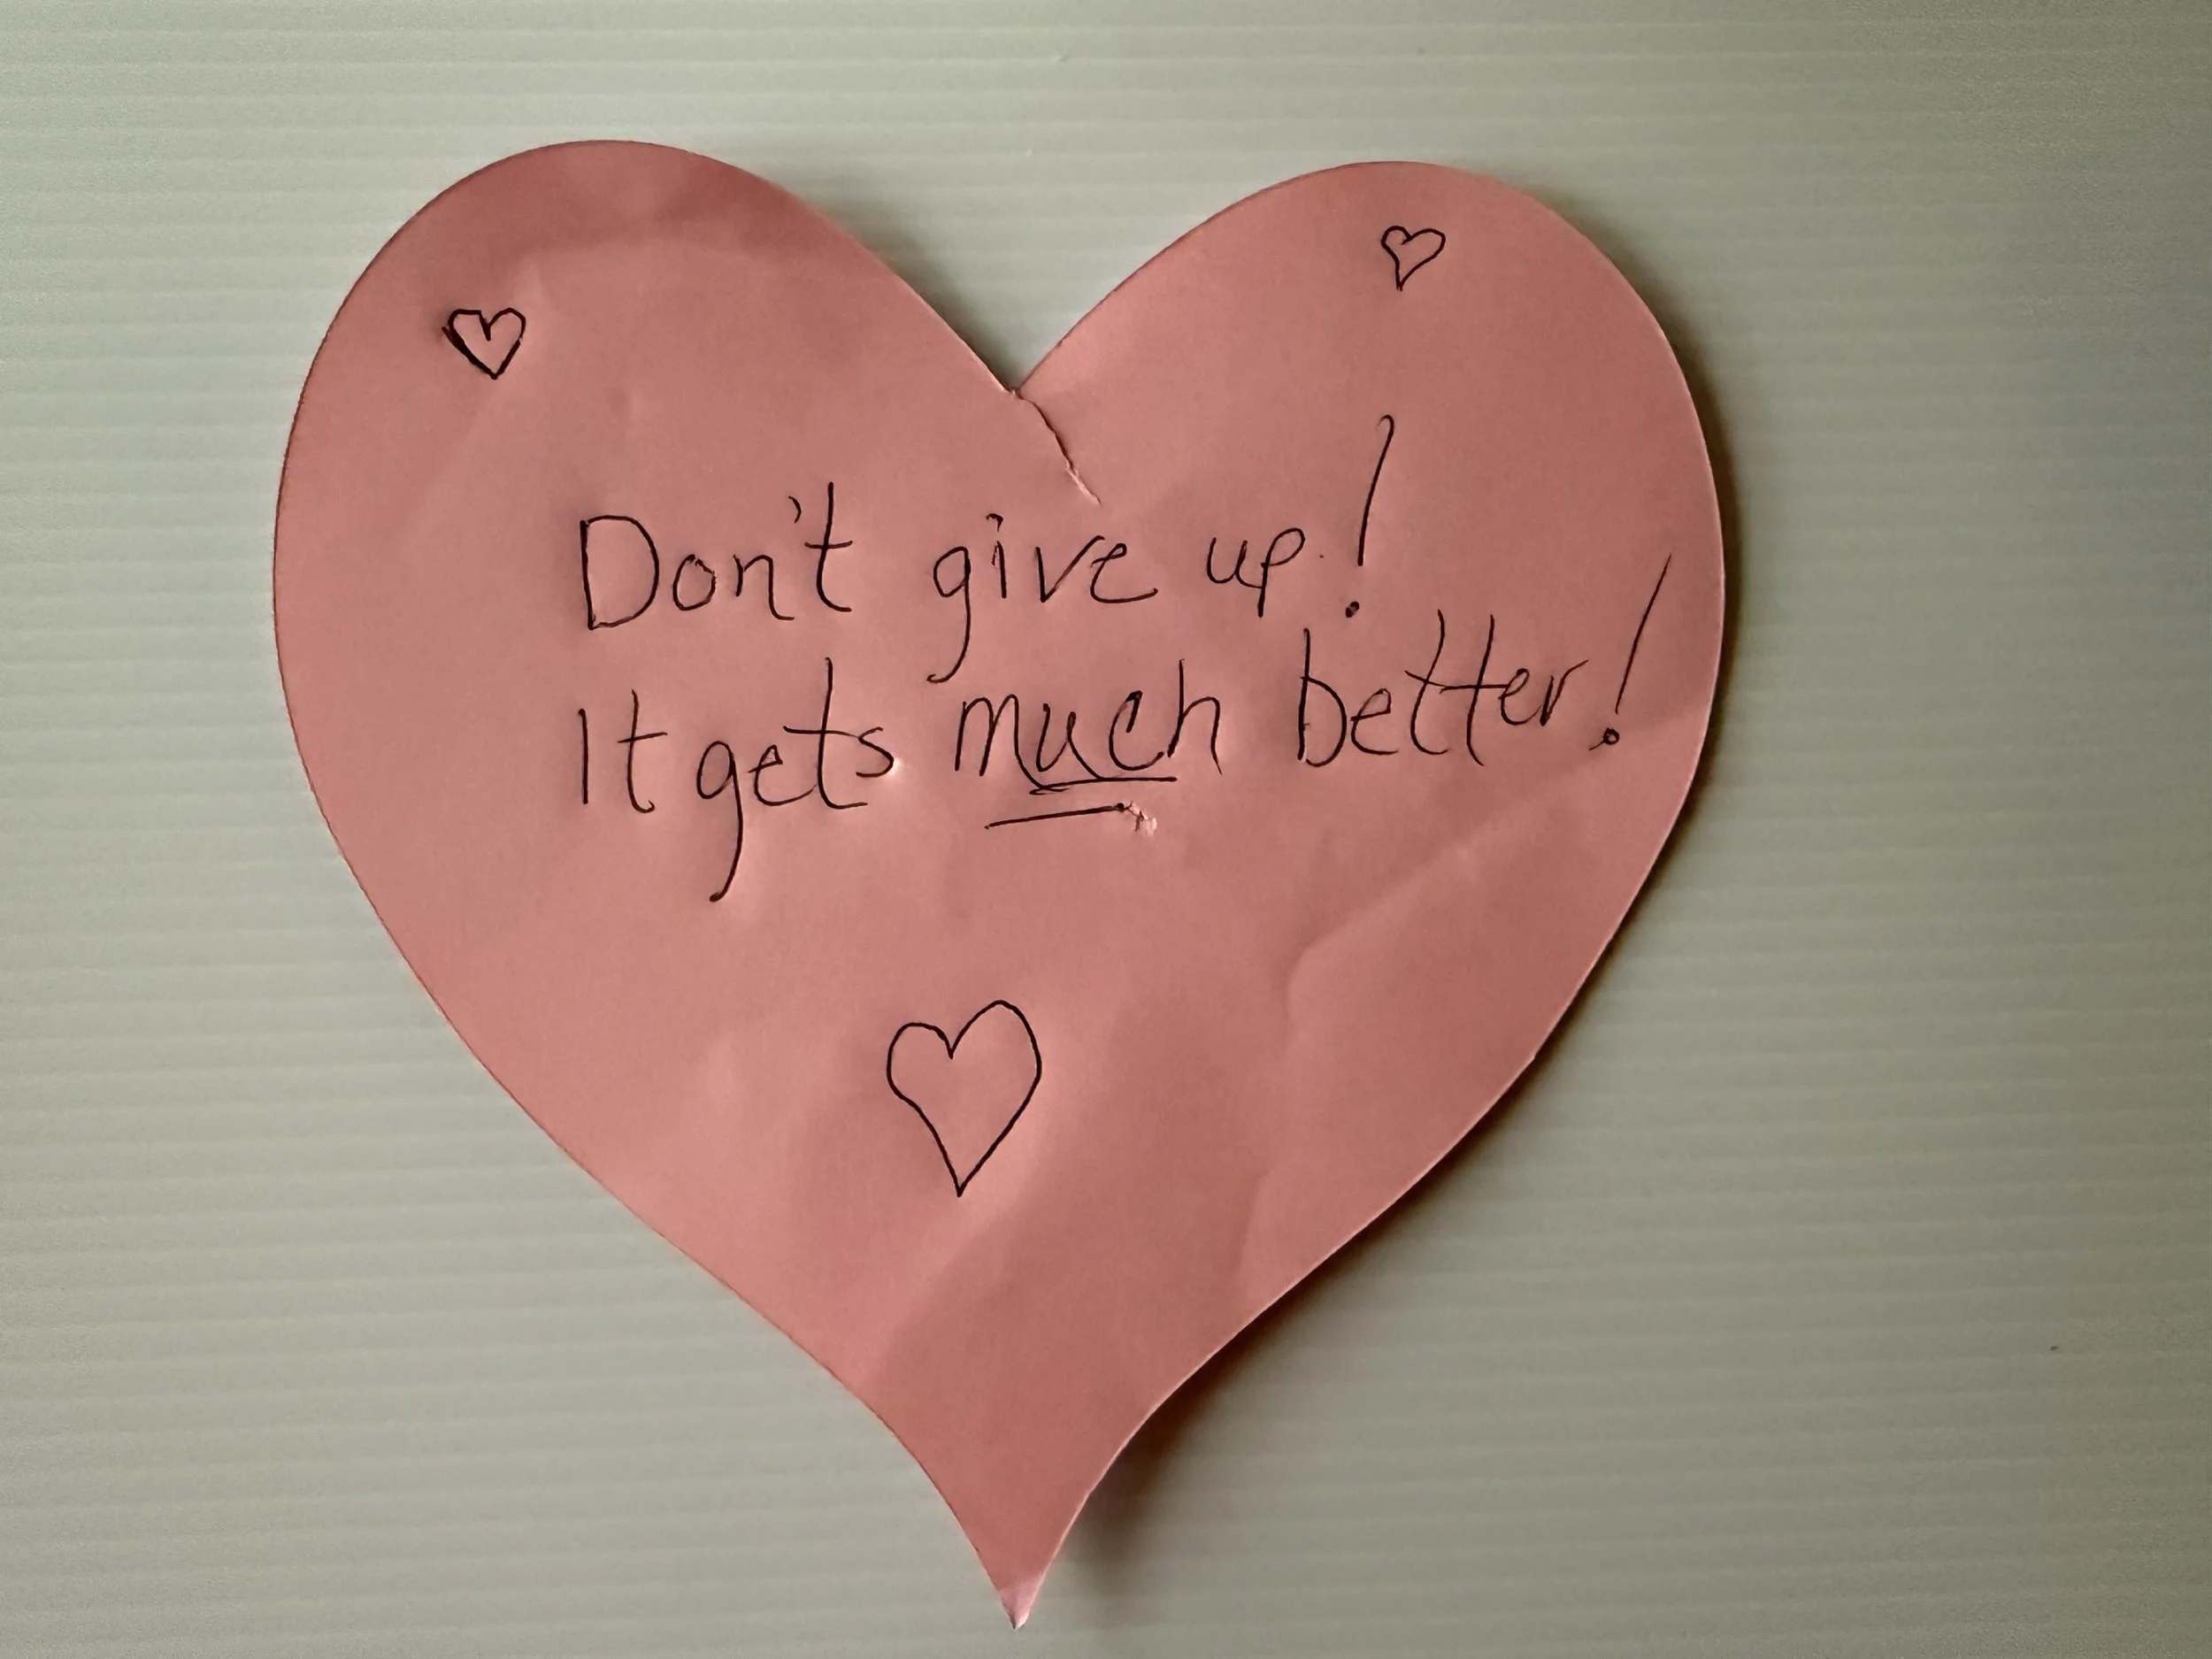 Don't give up!
It gets much better!